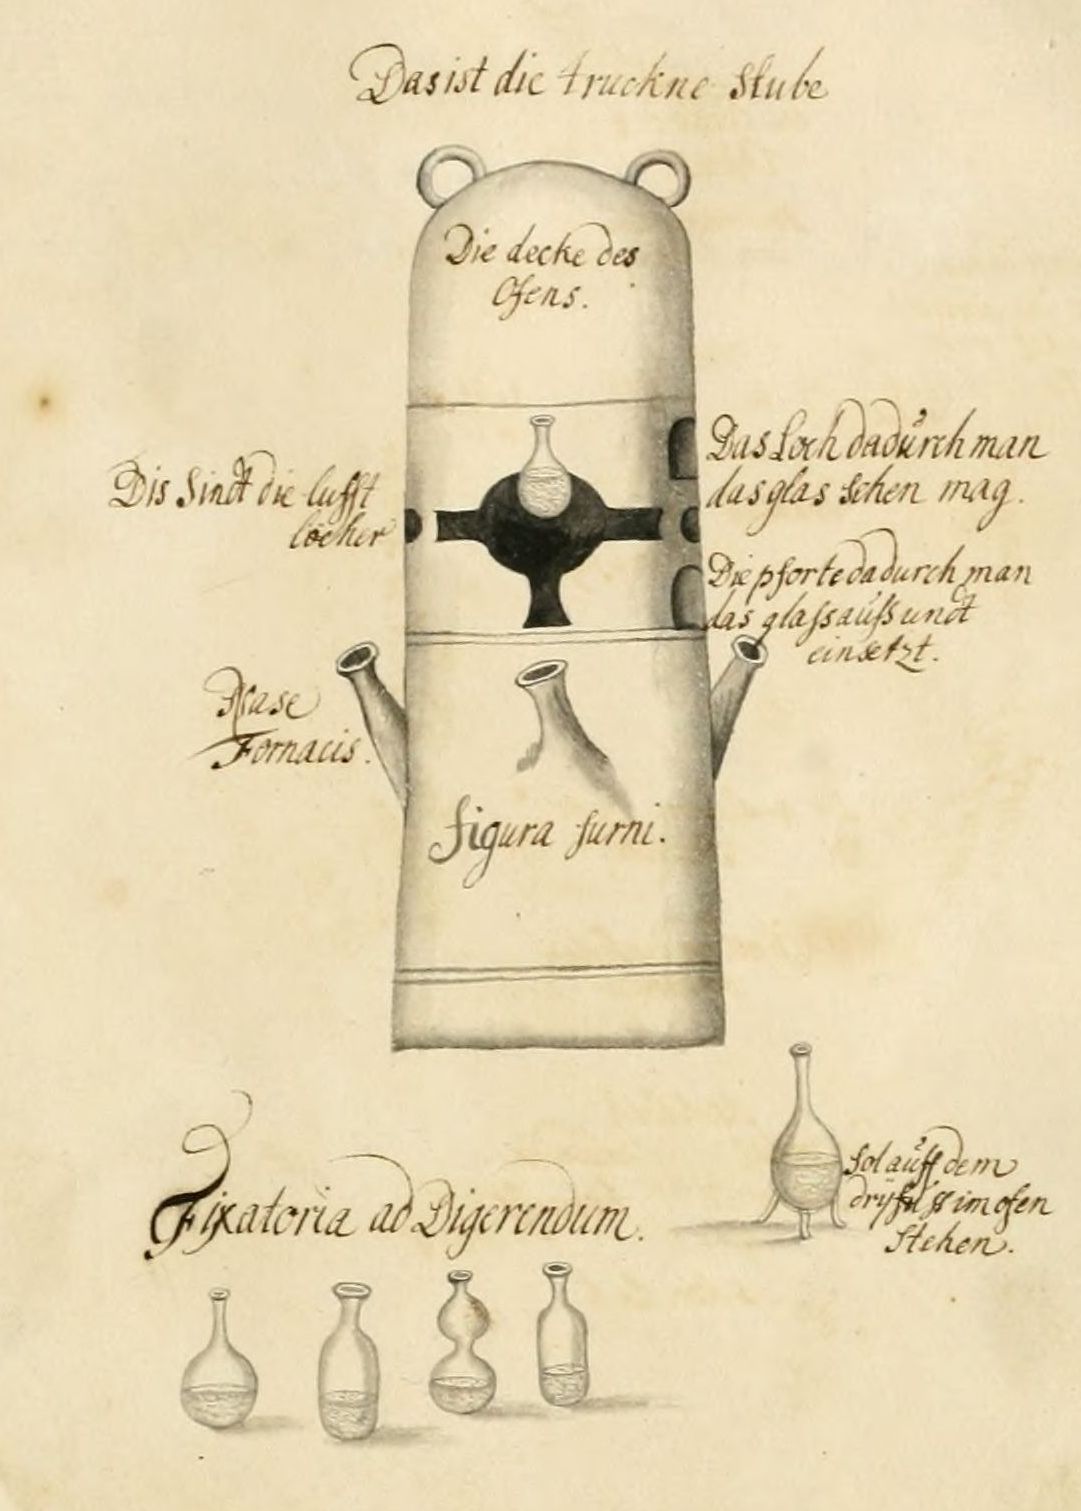 Das ist die truckne Stube
Die decke des
Ofens.
Dis Sindt die lufft
löcher
Das Loch dadurch man
das glas sehen mag.
Die pforte dadurch man
das glass auss undt
einsetzt.
Nase
Fornacis.
figura furni.
Sol auff dem
dryfuss im ofen
Stehen.
Fixatoria ad Digerendum.